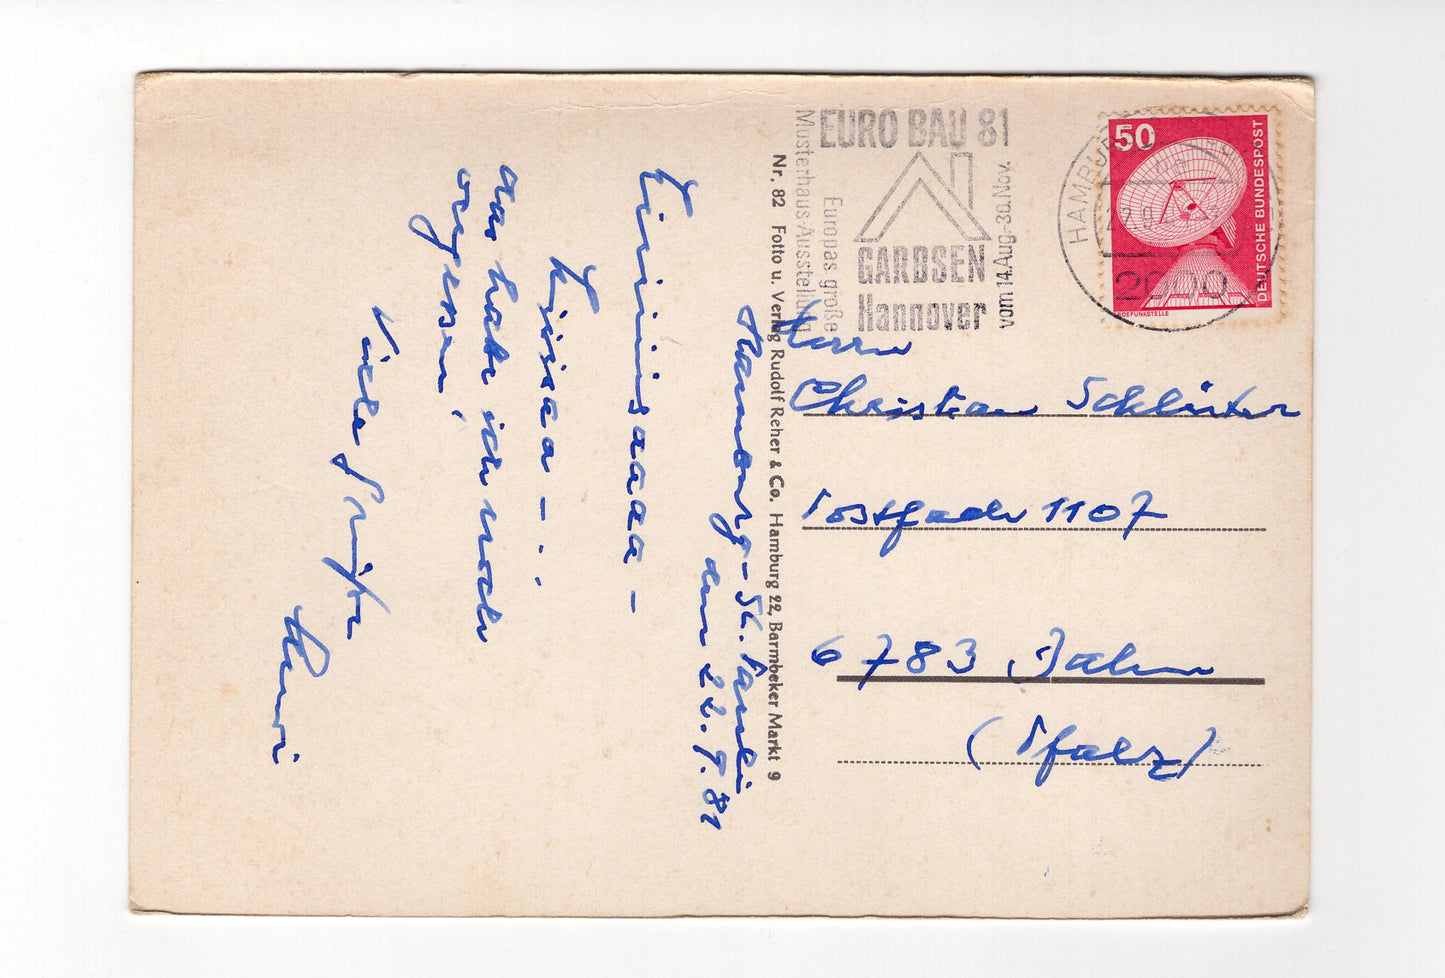 EURO BAU 81
Musterhaus-Ausstellung
Europas große
GARBSEN
Hannover
vom 14.Aug.-30.Nov.
HAMBURG
2000
50
DEUTSCHE BUNDESPOST
ERDEFUNKSTELLE
Nr. 82 Fotto u. Verlag Rudolf Reher & Co. Hamburg 22, Barmbeker Markt 9
Hamburg-St. Pauli
den 22.9.81
das hatte ich noch
vergessen!
Viele Grüße
Herrn
Christian Schlüter
Postfach 1107
6783 Dahn
(Pfalz)